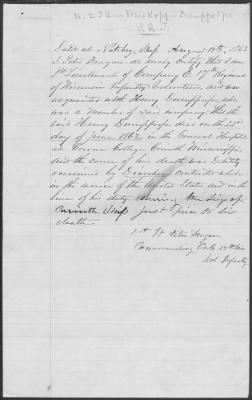 Dated at Natchez, Miss August 19th, 1863
I Peter Feagan do hereby Certify that I am
1st Lieutenant of Company E. 17th Regiment
of Wisconsin Infantry Volunteers, and was
acquainted with Henry
was a Member of Said Company; that the
Said Henry died on the 22nd
day of June 1862 in the General Hospital
at Corona College Corinth Mississippi
and the cause of his death was Debility
occasioned by Diarrhea contracted while
in the service of the United States and in the
line of his duty during the Siege of
Corinth Miss just prior to his
death
1st Lt Peter Feagan
Commanding Co E 17th Wis
Vol Infantry